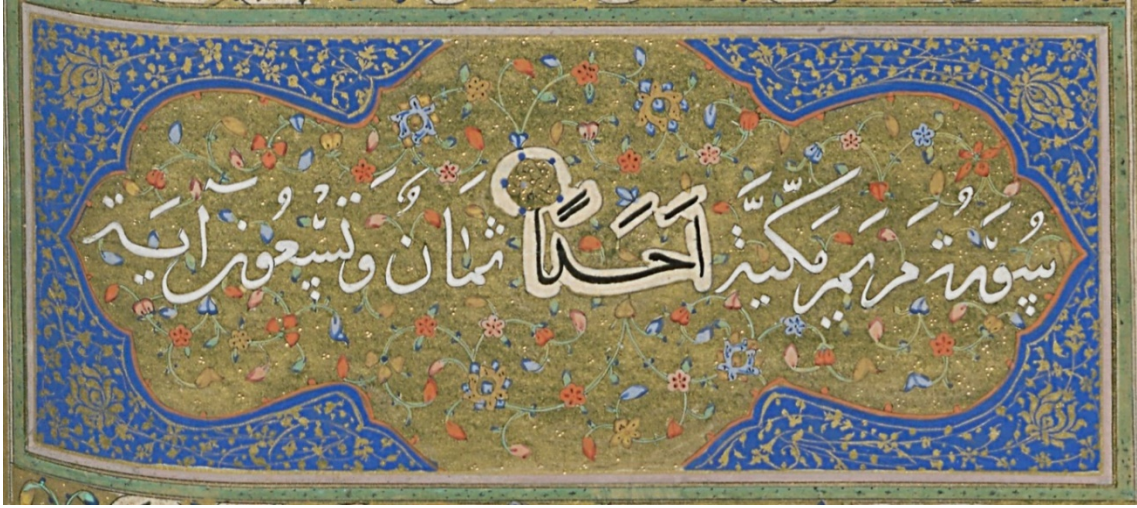 سُورَةُ مَرْيَم مَكِّيَّة اَحَدًا ثَمَانُ وَتِسْعُونَ آيَة